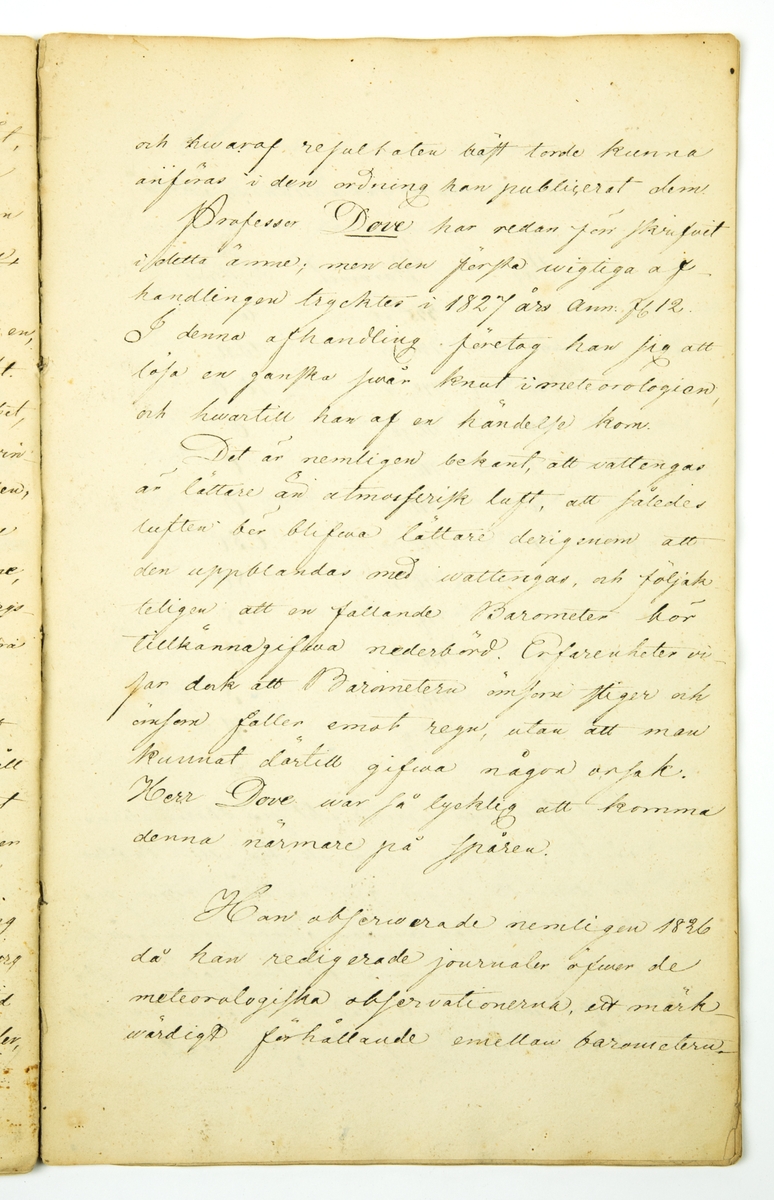 och hwaraf resultaten bäst torde kunna
anföras i den ordning han publicerat dem.
Professor Dove har redan förr skrifvit
i detta ämne; men den första wigtiga af-
handlingen trycktes i 1827 års Ann. № 12.
I denna afhandling företog han sig att
lösa en ganska swår knut i meteorologien,
och hwartill han af en händelse kom.
Det är nemligen bekant, att vattengas
är lättare än atmosferisk luft, att således
luften bör blifwa lättare derigenom att
den uppblandas med wattengas, och följak
teligen att en fallande Barometer bör
tillkännagifwa nederbörd. Erfarenheten vi-
sar dock att Barometern ömsom stiger och
ömsom faller emot regn, utan att man
kunnat därtill gifwa någon orsak.
Herr Dove war så lycklig att komma
denna närmare på spåren.
Han observerade nemligen 1826
då han redigerade journaler öfwer de
meteorologiska observationerna, ett märk-
wärdigt förhållande emellan barometern